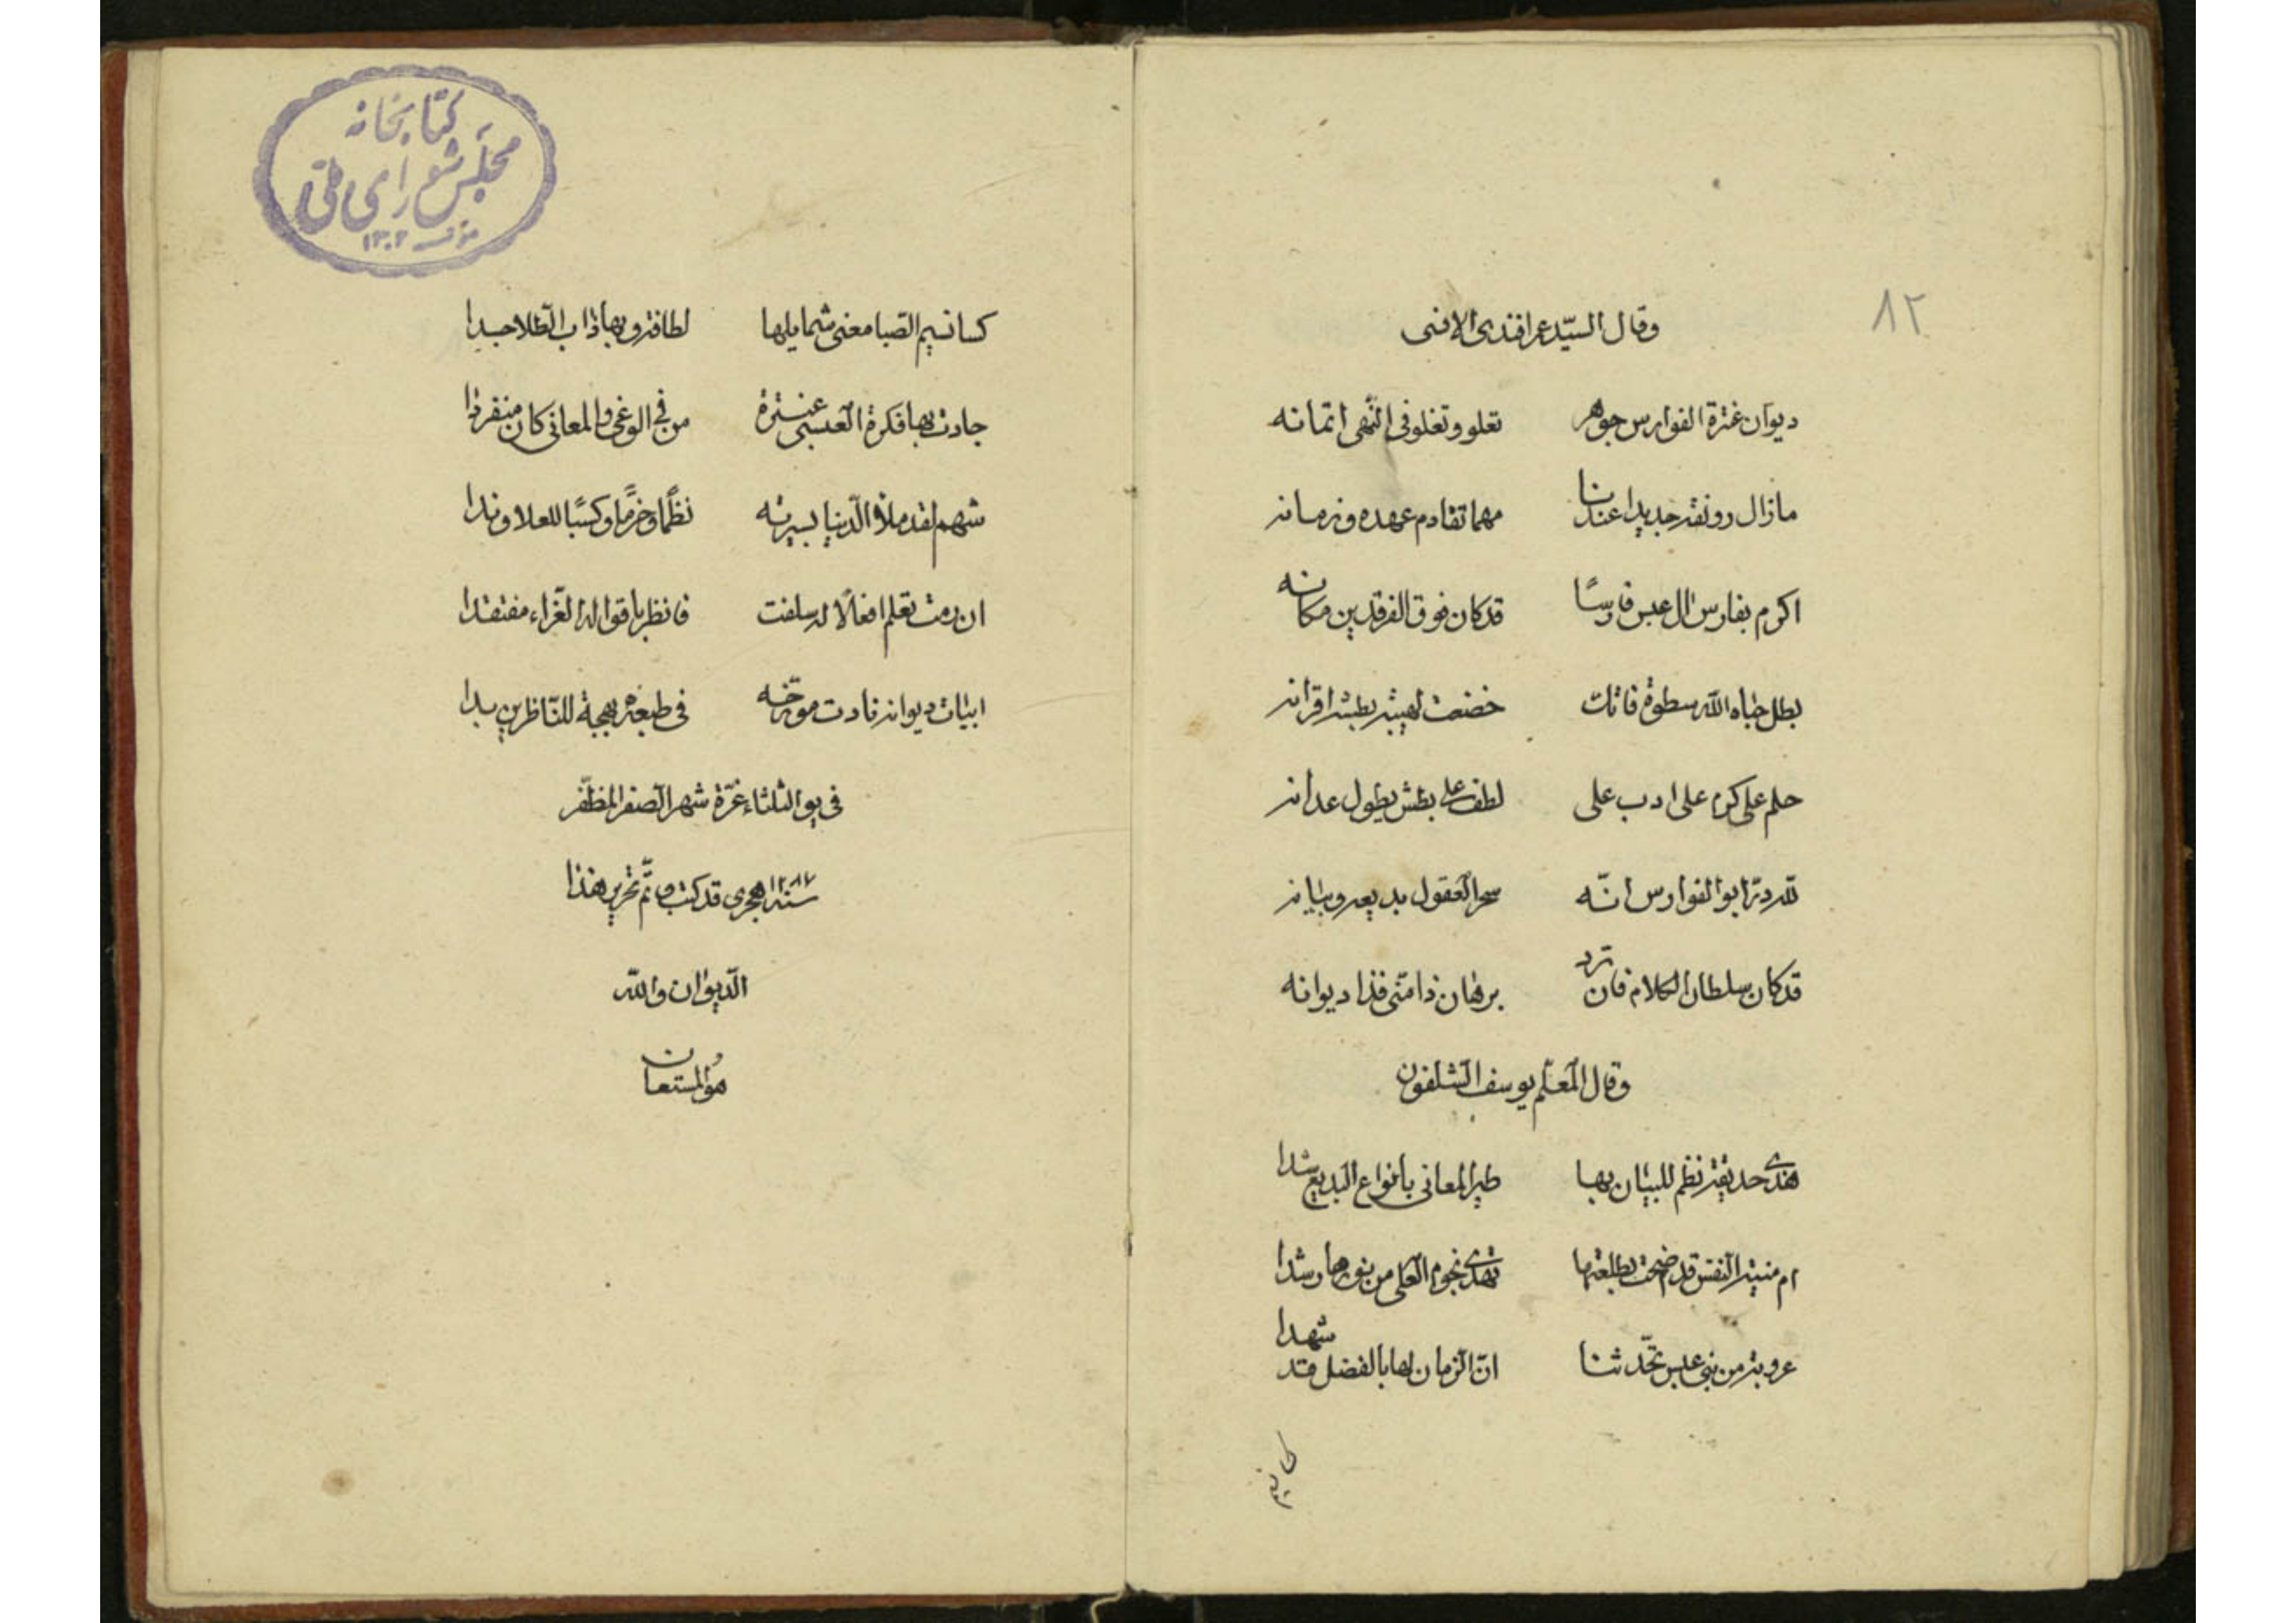 ٨٢
وقال السيّد عمر افندى الانسى
ديوان عنترة الفوارس جوهر تعلو وتغلو فى النّهى اثمانه
مازال رونقه جديدا عندنا مهما تقادم عهده وزمانه
اكرم بفارس ال عبس فارسًا قد كان فوق الفرقدين مكانه
بطل حباه الله سطوة فاتك خضعت لهيبته بطشه اقرانه
حلم على كرم على ادب على لطف على بطش يطول عدانه
لله درّ ابو الفوارس انّه سحر العقول بديعه وبيانه
قد كان سلطان الكلام فان ترد برهان ذا متّى فذا ديوانه
وقال المعلّم يوسف الشلفون
هذى حديقة نظم للبيان بها طير المعانى بانواع البديع شدا
ام منية النفس قد ضحت بطلعتها تهدى نجوم العلى من نورها رشدا
عروبة من بنى عبس تحّدثنا انّ الزمان لها بالفضل قد شهدا
كسا نسيم
كسا نسيم الصّبا معنى شمايلها لطافة وبها ذاب الطّلا حسدا
جادت بها فكرة العبسى عنترة من فى الوغى والمعانى كان منفردا
شهم لقد ملأ الدّنيا بسيرته نظمًا وحزمًا وكسبًا للعلا وندا
ان رمت تعلم افعالًا له سلفت فانظر باقواله الغّراء مفتقدا
ابيات ديوانه نادت مورّخه فى طبعه بهجة للنّاظرين بدا
فى يوم الثلثاء غرّة شهر الصفر المظفّر
سنه ١٢٨٧ هجرى قد كتب وتمّ تحرير هذا
الّديوان والله
هو المستعان
كتابخانه
مجلس شوراى ملّى
١٣٠٢